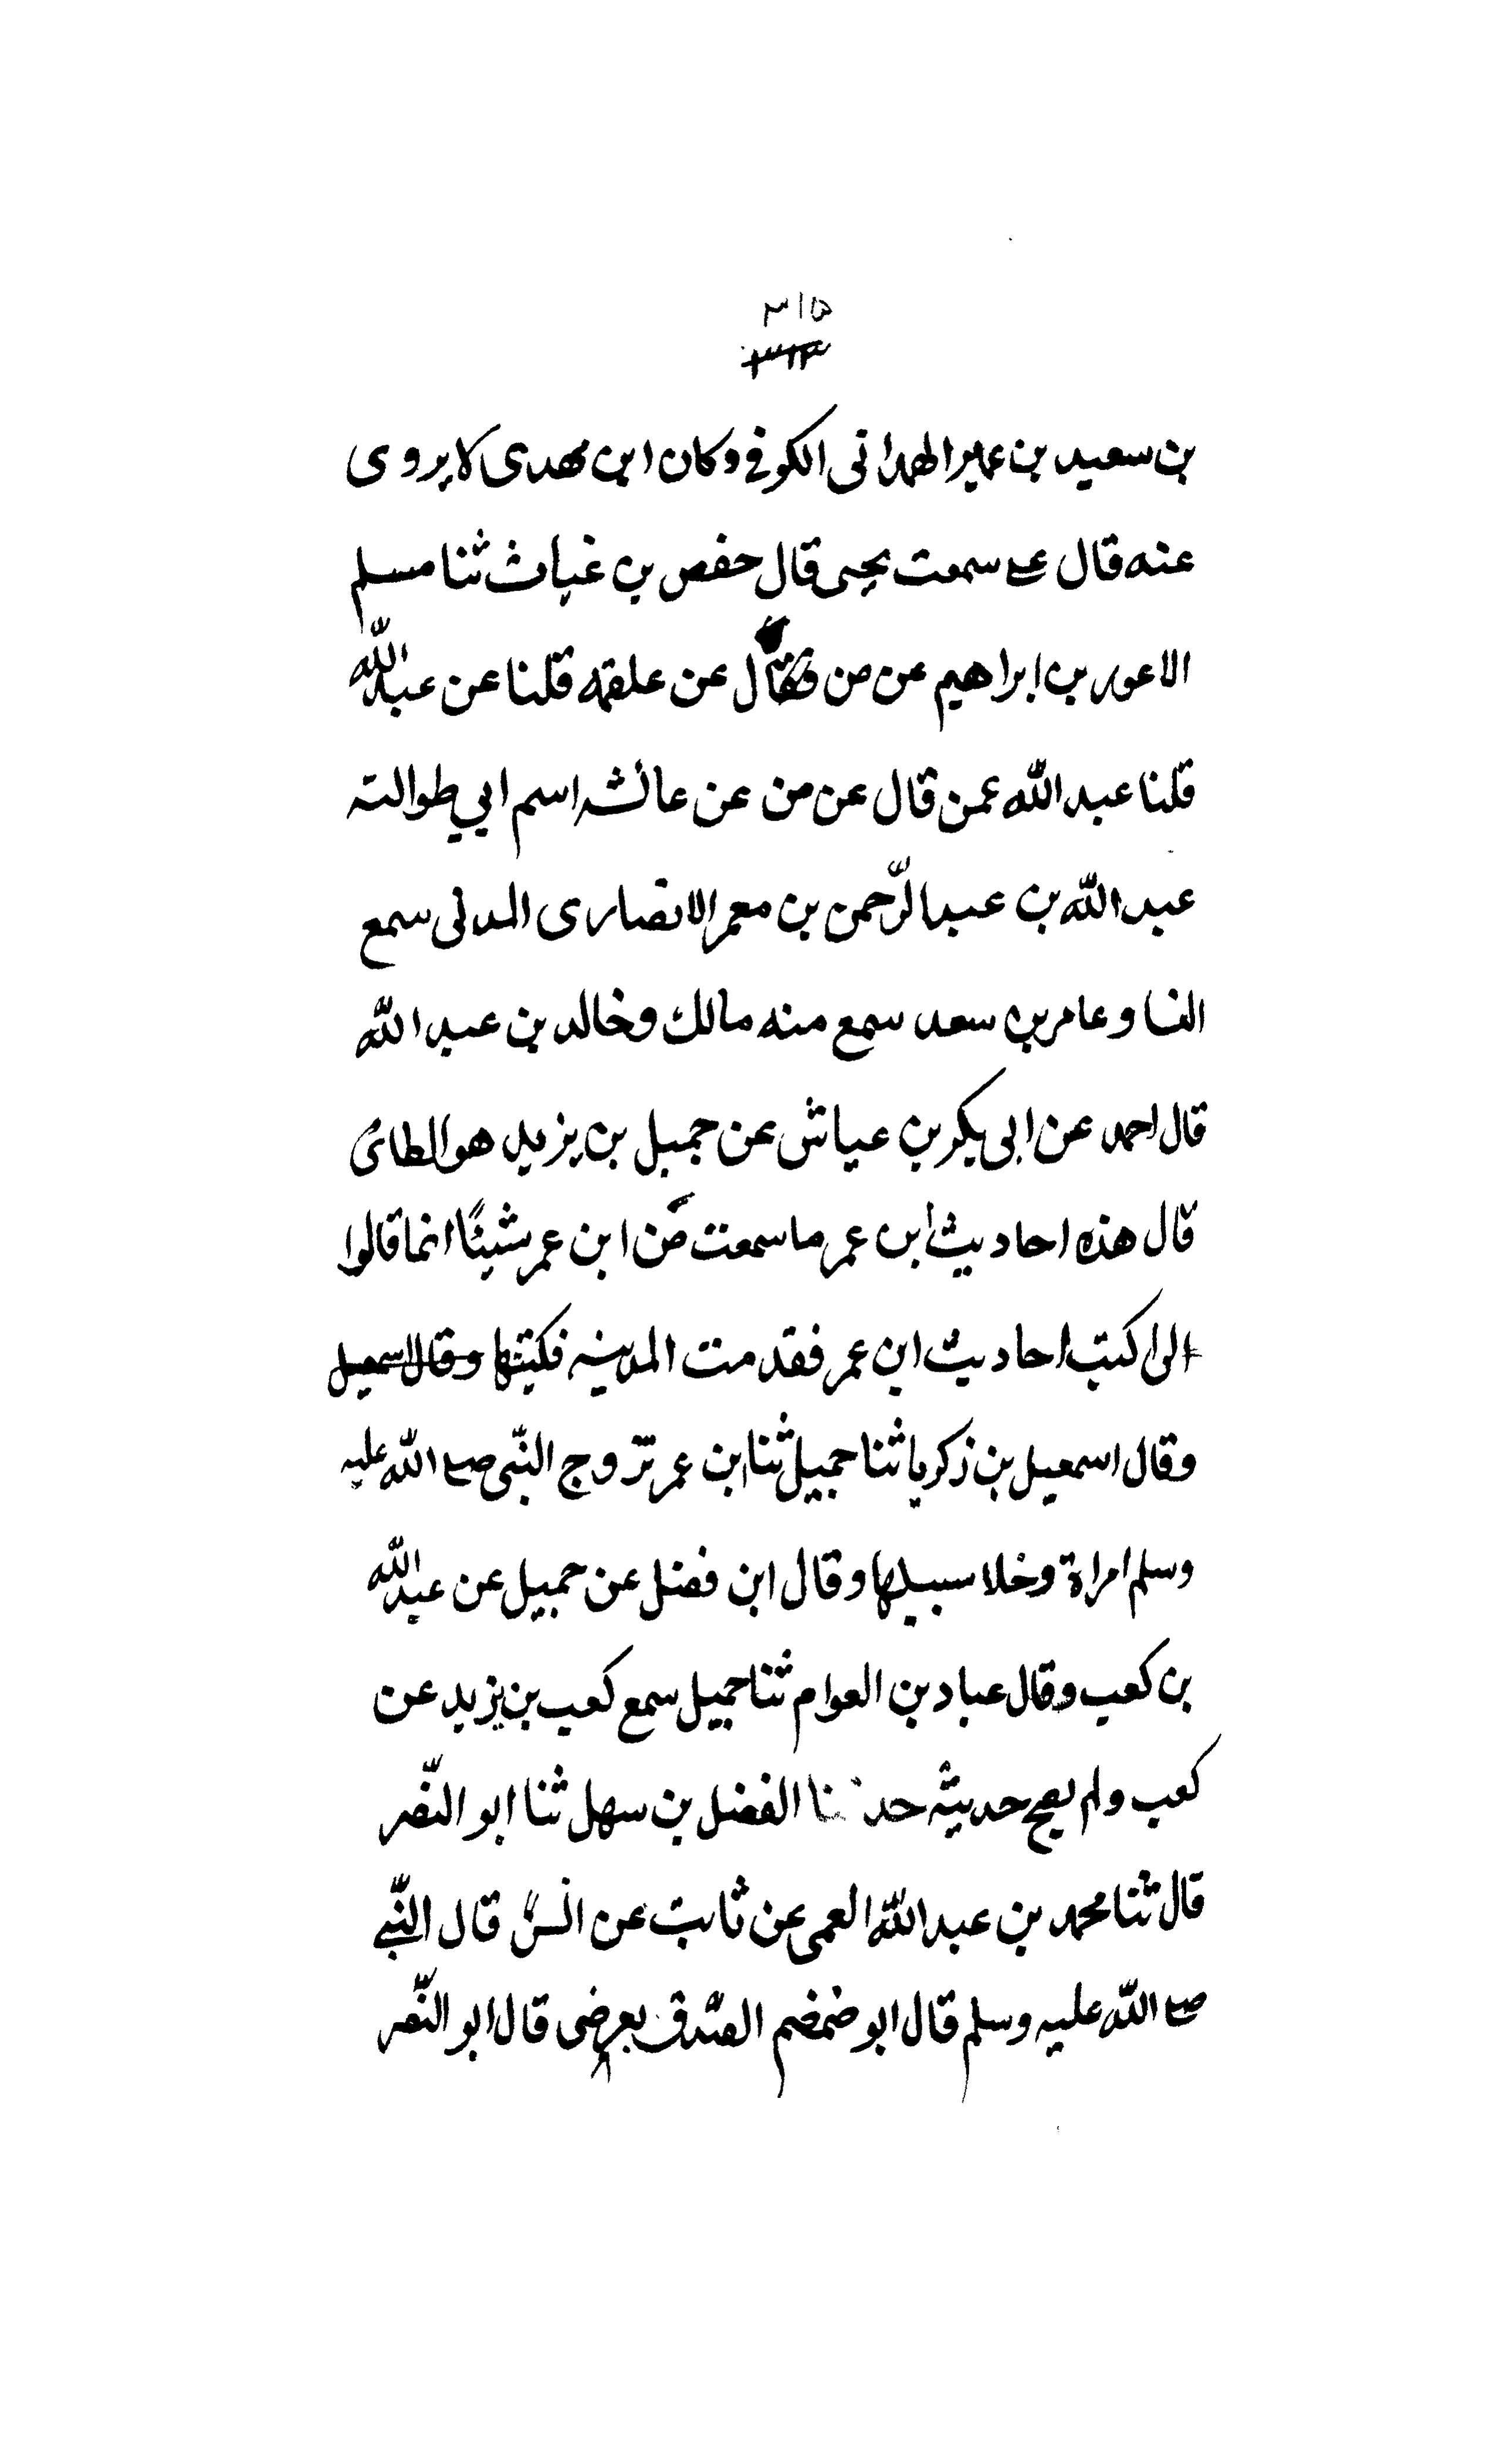 ٣١٥
بن سعيد بن عمير الهمدانى الكوفي وكان ابن مهدى لا يروى
عنه قال على سمعت يحيى قال حفص بن غياث ثنا مسلم
الاعور بن ابراهيم عن من فقال عن علقمه قلنا عن عبد الله
قلنا عبد الله عمن قال عن من عن عائشه اسم ابي طوالته
عبد الله بن عبد الرّحمن بن معمر الانصارى المدنى سمع
انسا وعامر بن سعد سمع منه مالك وخالد بن عبد الله
قال احمد عن ابى بكر بن عياش عن جميل بن يزيد هو الطائ
قال هذه احاديث ابن عمر ما سمعت من ابن عمر شيئًا انما قالوا
الى اكتب احاديث ابن عمر فقدمت المدينه فكتبتها وقال اسمعيل
وقال اسمعيل بن زكريا ثنا جميل ثنا ابن عمر تزّوج النّبى صلى الله عليه
وسلم امراة وخلا سبيلها وقال ابن فضل عن جميل عن عبد الله
بن كعب وقال عباد بن العوام ثنا جميل سمع كعب بن يزيد عن
كعب ولم يصح حديثه حدثنا الفضل بن سهل ثنا ابو النّضر
قال ثنا محمد بن عبد الله العمى عن ثابت عن انس قال النّبي
صلى الله عليه وسلم قال ابو ضمضم اتصّدق بعرضى قال ابو النّضر